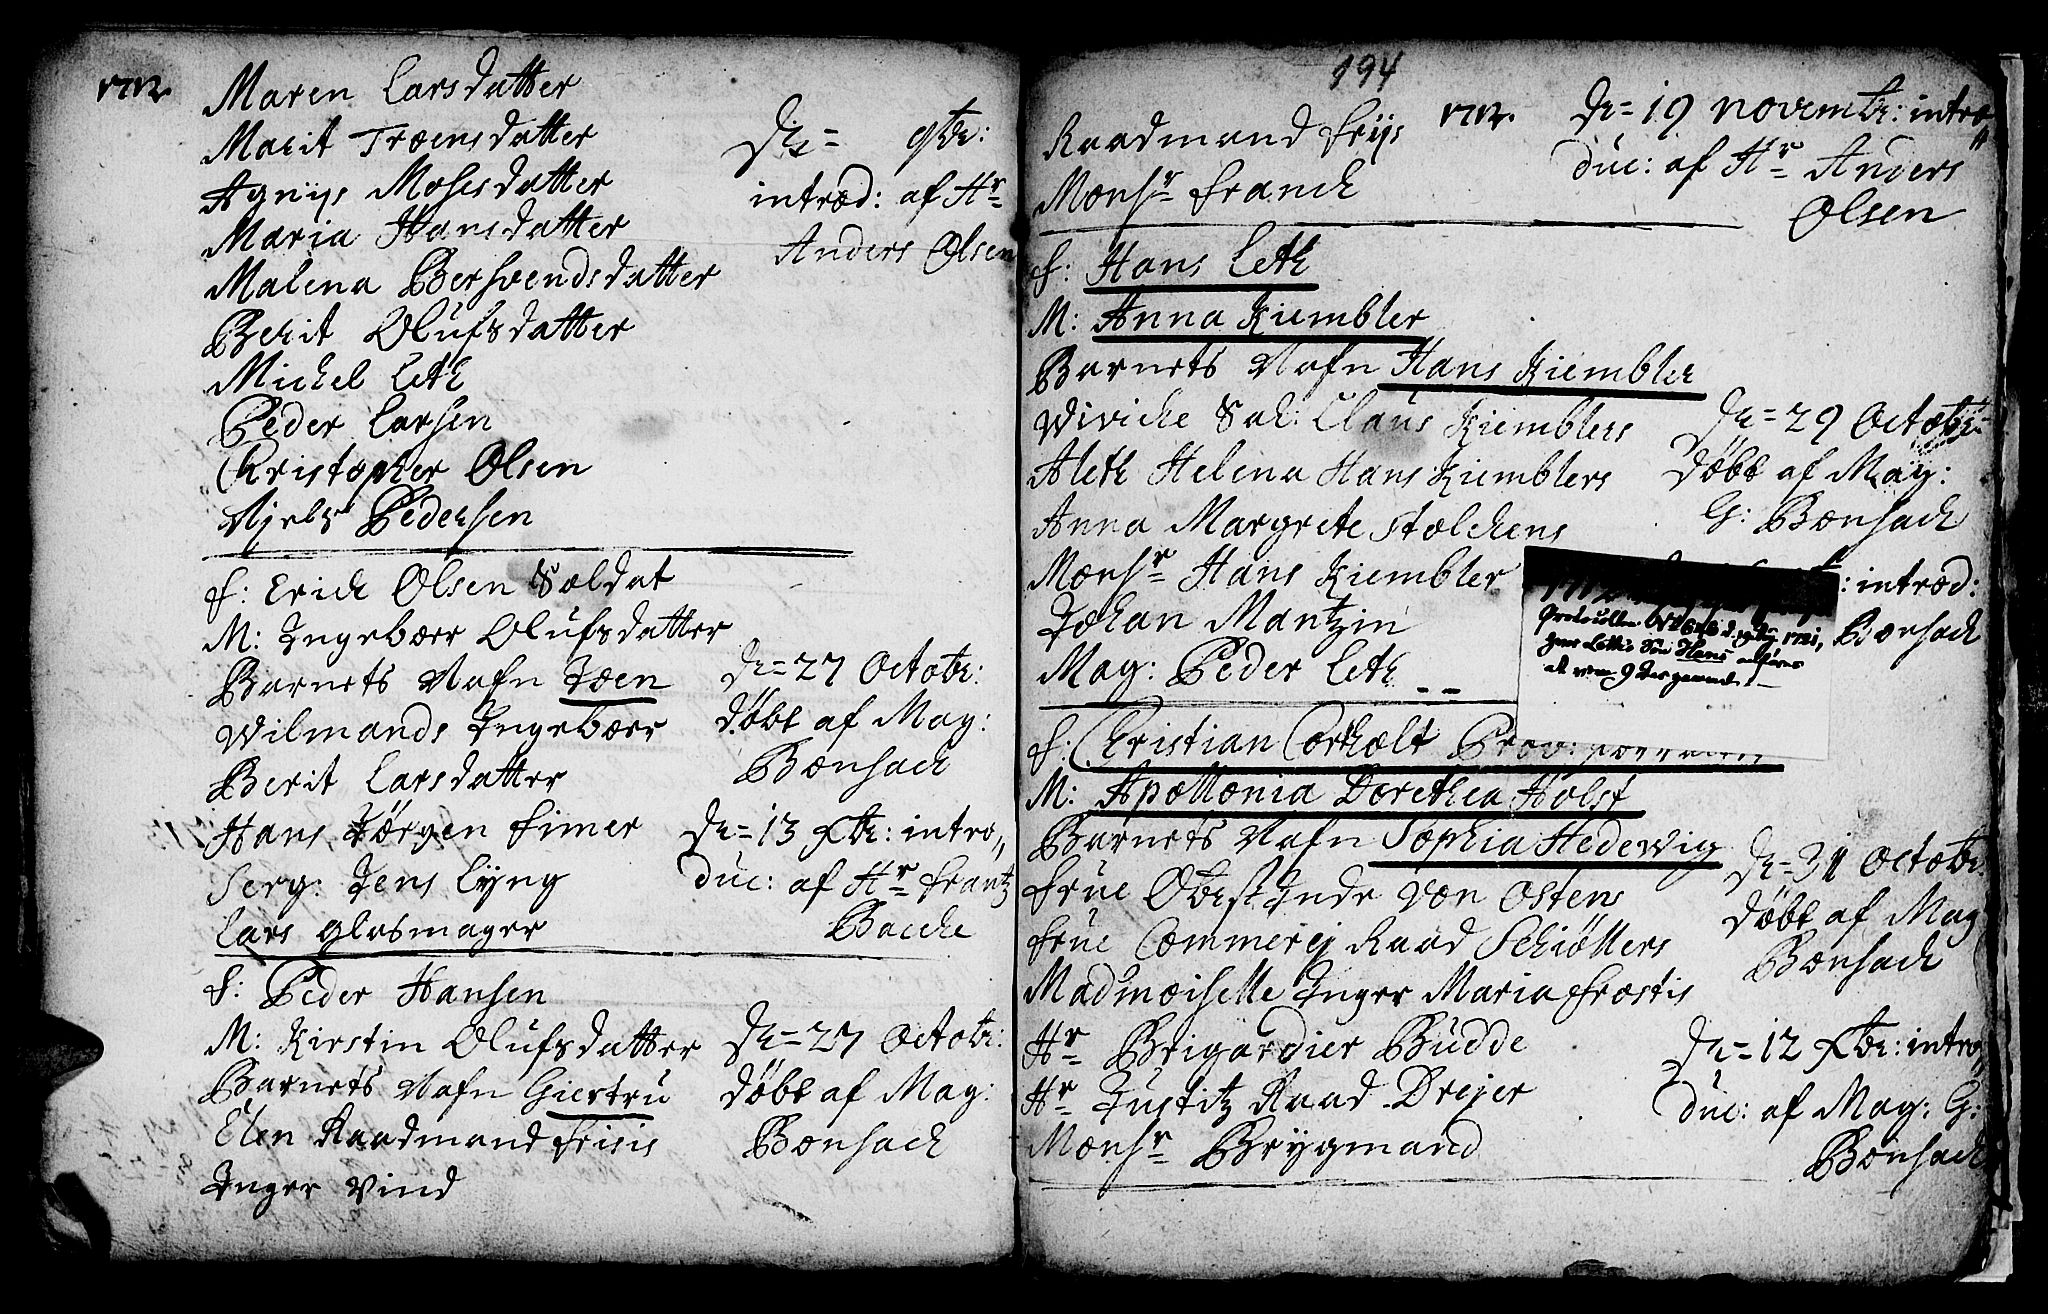 1712.
Maren Larsdatter
Marit Troensdatter
Agniis Mosesdatter
Maria Hansdatter
Malena Bersvendsdatter
Berit Olufsdatter
Michel Leth
Peder Larsen
Christopher Olsen
Njels Pedersen
D: = 9br:
introd: af Hr
Anders Olsen
F: Erich Olsen Soldat
M: Ingeborr Olufsdatter
Barnets Nafn Joen
Wilmands Ingeborr
Berit Larsdatter
Hans Jörgen Fimer
Serg: Jens Lyng
Lars glasmager
D: = 27 Octobr:
döbt af Mag:
Bonsach
D: = 13 Xbr: intro„
duc: af Hr Frantz
Bacche
F: Peder Hansen
M: Kirstin Olufsdatter
Barnets Nafn Giertru
Elen Raadmand Frisis
Inger Vind
D: = 27 Octobr:
döbt af Mag:
Bonsach
194
1712.
Raadmand Friis
Monsr Franch
D: = 19 novembr: intro„
duc: af Hr Anders
Olsen
F: Hans Leth
M: Anna Kiembler
Barnets Nafn Hans Kiembler
Wiviche Sal: Claus Kiemblers
Aleth Helena Hans Kiemblers
Anna Margrete Stolchens
Monsr Hans Kiembler
Johan Mantzin
Mag: Peder Leth
D: = 29 Octobr:
döbt af Mag:
G: Bonsach
: introd:
Bonsach
1712
Hans
F: Christian Corholt
M: Apollonia Dorethea Holst
Barnets Nafn Sophia Hedewig
Frue Obrstinde von Ostens
Frue Commerej Raad Schiöllers
Madmoiselle Inger Maria Frostis
Hr Brigardier Budde
Hr Justitz Raad Drejer
Monsr Brygmand
D: = 31 Octobr:
döbt af Mag
Bonsach
D: = 12 Xbr: intro„
duc: af Mag: G:
Bonsach